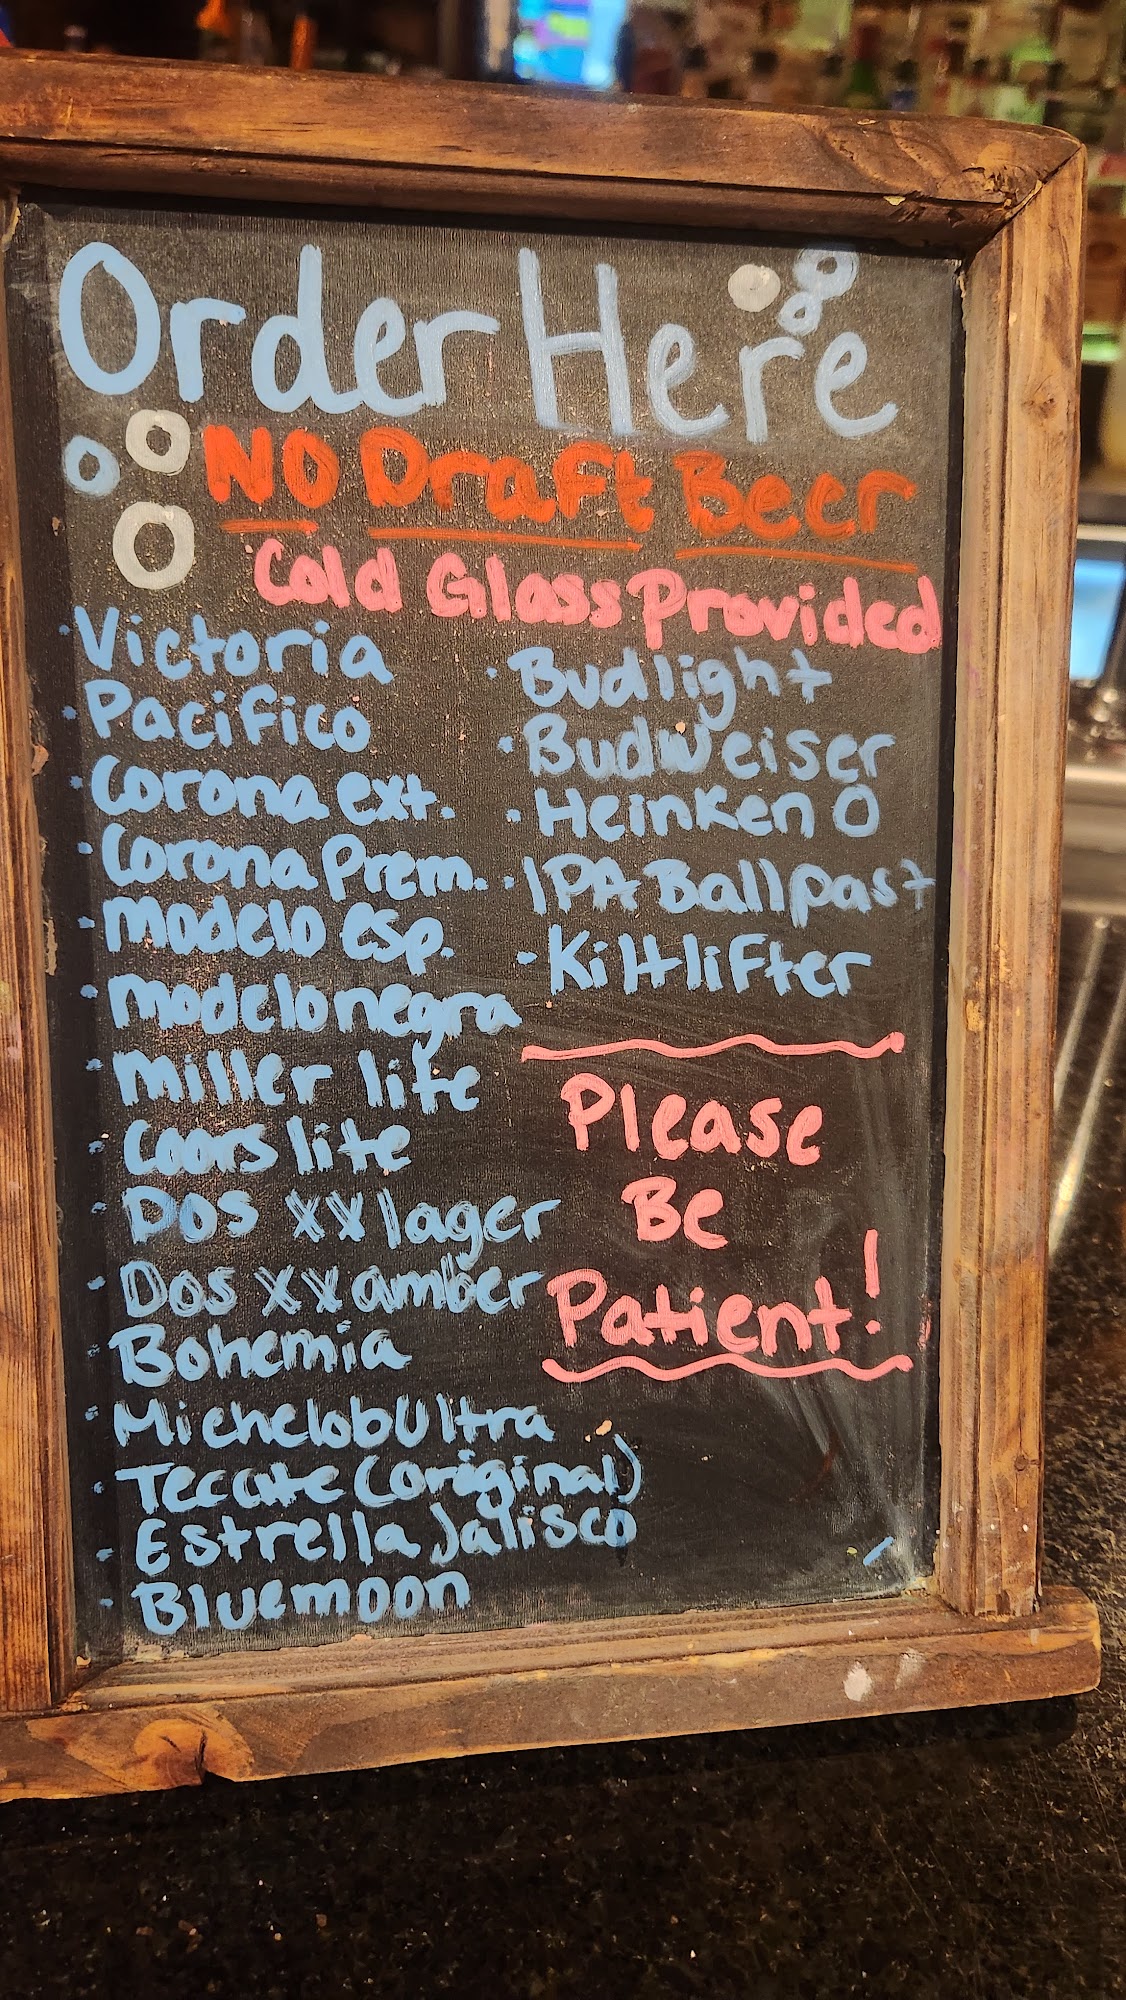 Order Here
NO Draft Beer
Cold Glass Provided
· Victoria
· Pacifico
· Corona ext.
· Corona Prem.
· Modelo esp.
· Modelo negra
· Miller lite
· Coors lite
· Dos XX lager
· Dos XX amber
· Bohemia
· Michelob Ultra
· Tecate (original)
· Estrella Jalisco
· Bluemoon
· Budlight
· Budweiser
· Heinken O
· IPA Ballpast
· Kiltlifter
Please
Be
Patient!